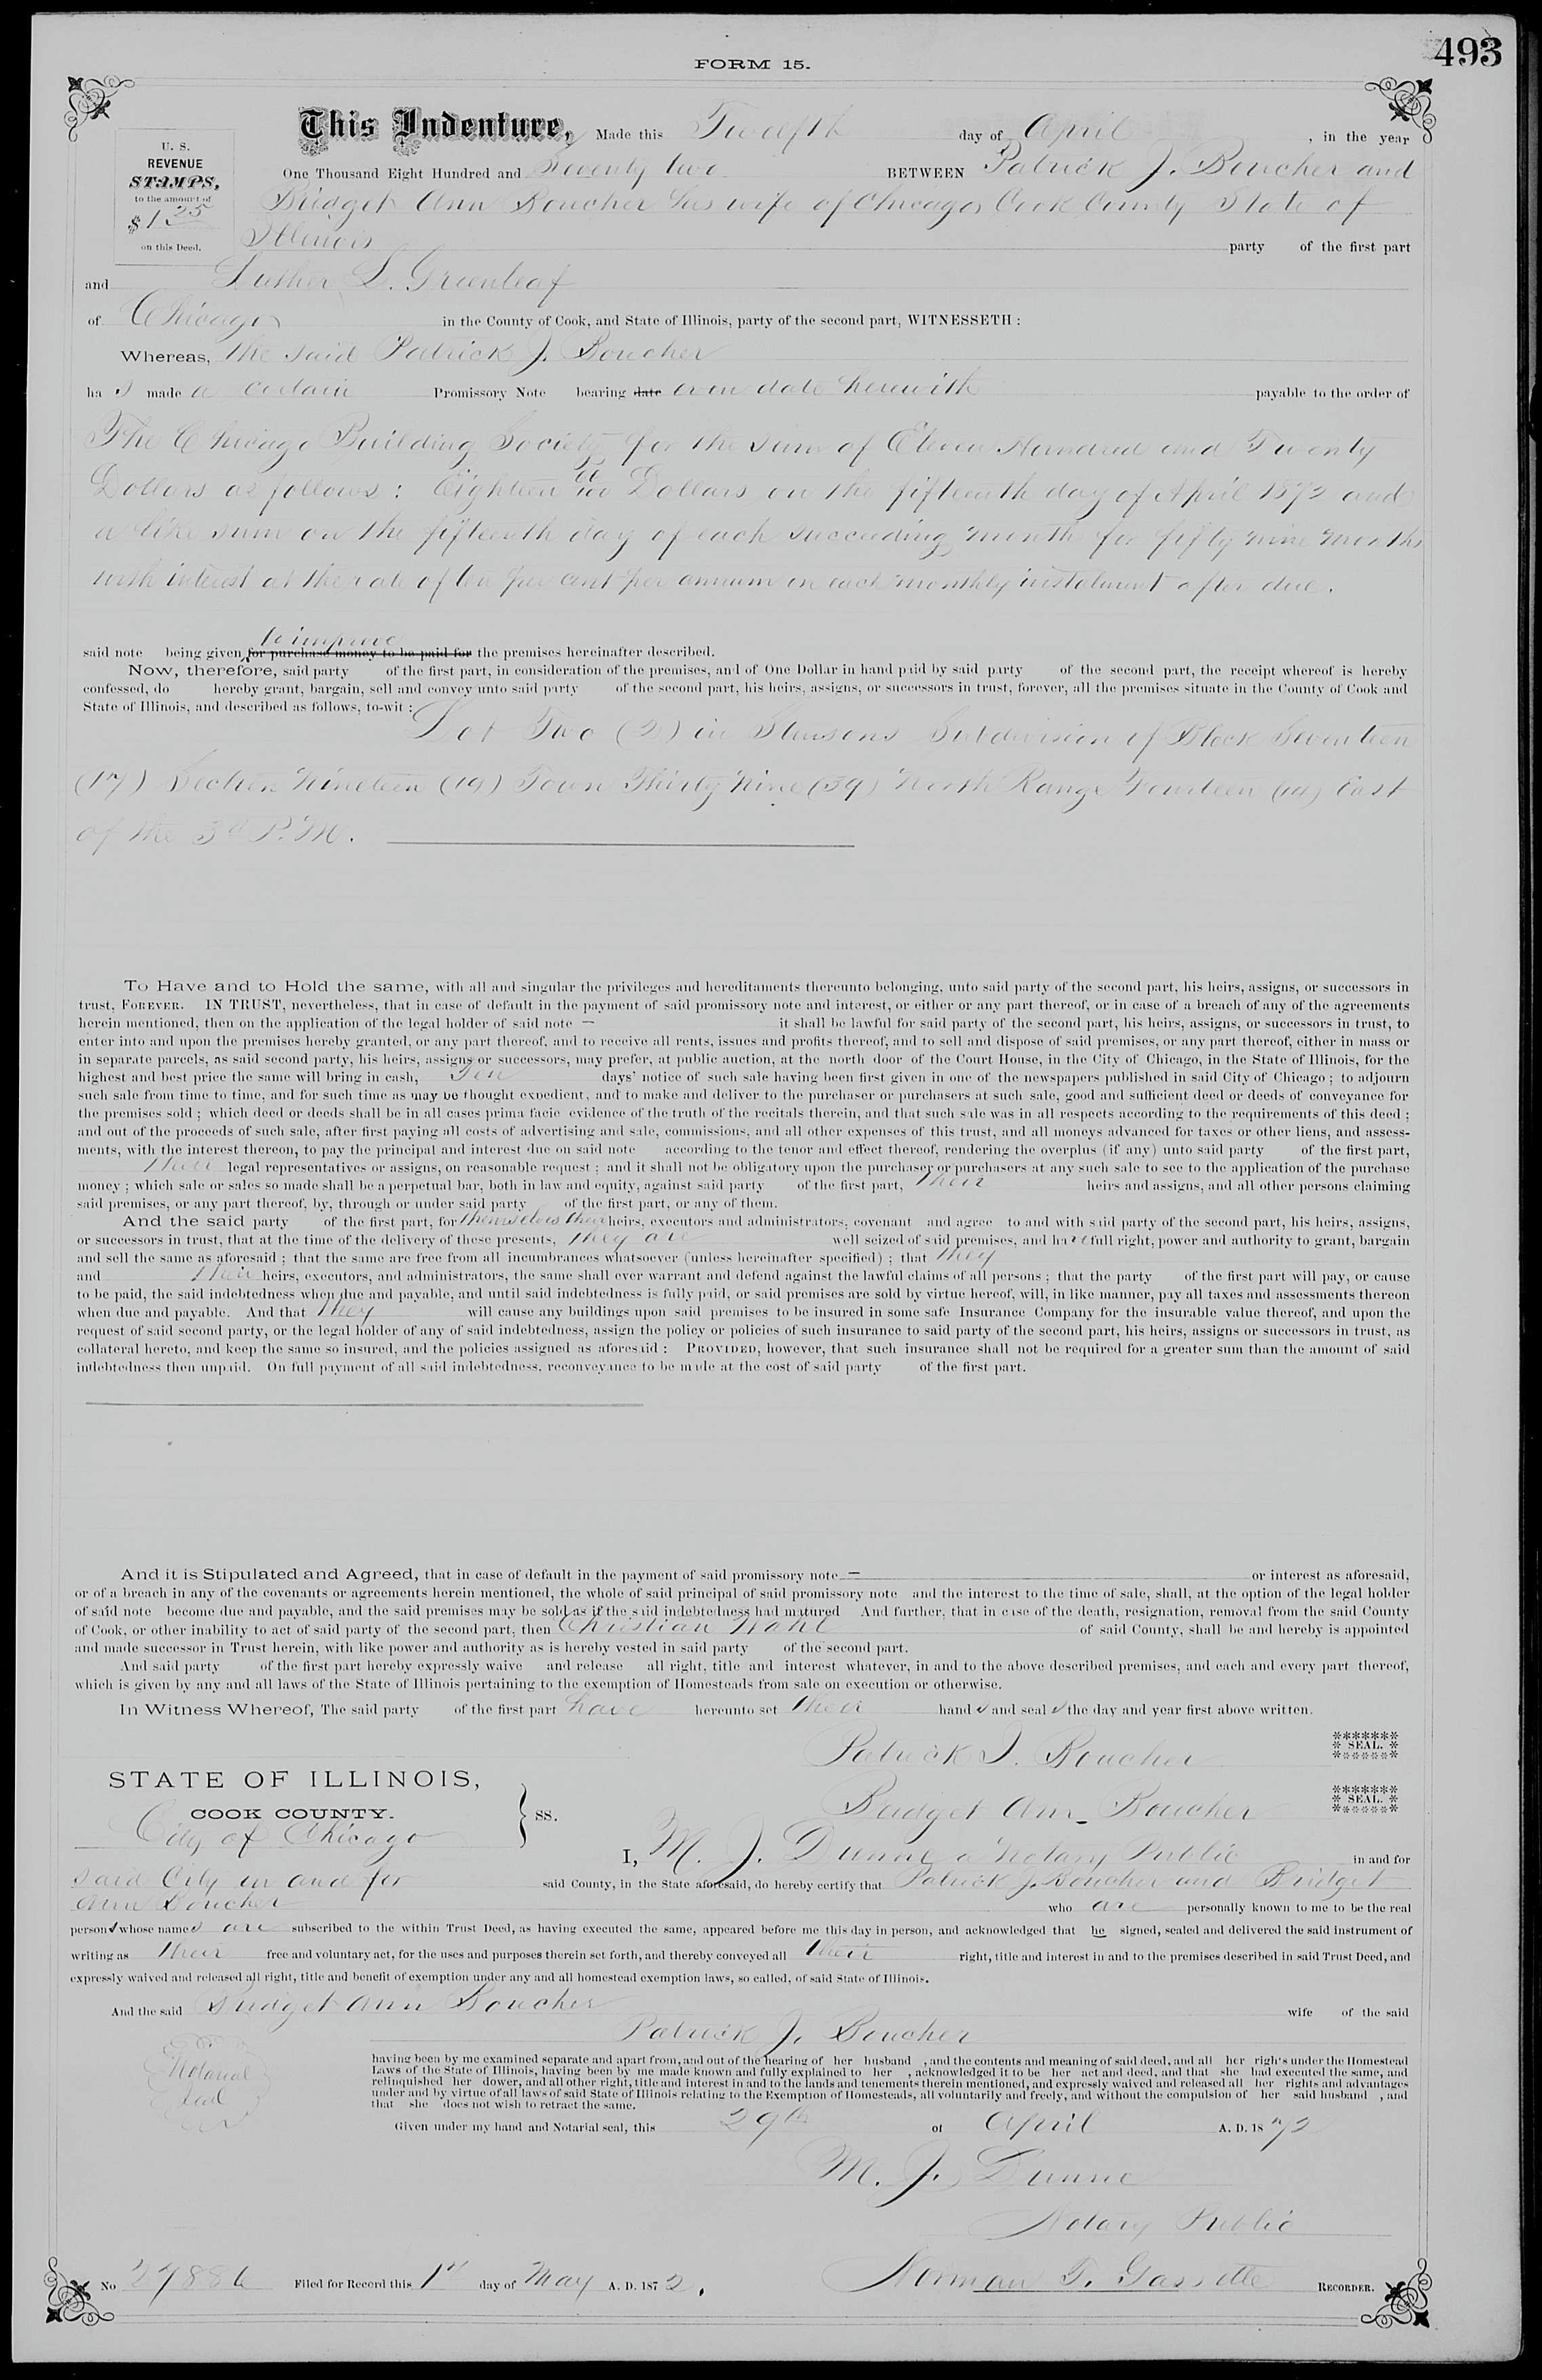 493
FORM 15.
This Indenture, Made this Twelfth day of April, in the year
U. S. REVENUE STAMPS, to the amount of $1 25 on this Deed.
One Thousand Eight Hundred and Seventy two BETWEEN Patrick J. Boucher and
Bridget Ann Boucher his wife of Chicago Cook County State of
Illinois party of the first part
and Luther L. Greenleaf
of Chicago in the County of Cook, and State of Illinois, party of the second part, WITNESSETH :
Whereas, the said Patrick J. Boucher
ha s made a certain Promissory Note bearing date even date herewith payable to the order of
The Chicago Building Society for the sum of Eleven Hundred and Twenty
Dollars as follows : Eighteen Dollars on the fifteenth day of April 1872 and
a like sum on the fifteenth day of each succeeding month for fifty nine months
with interest at the rate of ten per cent per annum on each monthly instalment after due.
to improve
said note being given for purchase money to be paid for the premises hereinafter described.
Now, therefore, said party of the first part, in consideration of the premises, and of One Dollar in hand paid by said party of the second part, the receipt whereof is hereby
confessed, do hereby grant, bargain, sell and convey unto said party of the second part, his heirs, assigns, or successors in trust, forever, all the premises situate in the County of Cook and
State of Illinois, and described as follows, to-wit :
Lot Two (2) in Stinsons Subdivision of Block Seventeen
(17) Section Nineteen (19) Town Thirty Nine (39) North Range Fourteen (14) East
of the 3d P.M.
To Have and to Hold the same, with all and singular the privileges and hereditaments thereunto belonging, unto said party of the second part, his heirs, assigns, or successors in
trust, FOREVER. IN TRUST, nevertheless, that in case of default in the payment of said promissory note and interest, or either or any part thereof, or in case of a breach of any of the agreements
herein mentioned, then on the application of the legal holder of said note — it shall be lawful for said party of the second part, his heirs, assigns, or successors in trust, to
enter into and upon the premises hereby granted, or any part thereof, and to receive all rents, issues and profits thereof, and to sell and dispose of said premises, or any part thereof, either in mass or
in separate parcels, as said second party, his heirs, assigns or successors, may prefer, at public auction, at the north door of the Court House, in the City of Chicago, in the State of Illinois, for the
highest and best price the same will bring in cash, Ten days' notice of such sale having been first given in one of the newspapers published in said City of Chicago ; to adjourn
such sale from time to time, and for such time as may be thought expedient, and to make and deliver to the purchaser or purchasers at such sale, good and sufficient deed or deeds of conveyance for
the premises sold ; which deed or deeds shall be in all cases prima facie evidence of the truth of the recitals therein, and that such sale was in all respects according to the requirements of this deed ;
and out of the proceeds of such sale, after first paying all costs of advertising and sale, commissions, and all other expenses of this trust, and all moneys advanced for taxes or other liens, and assess-
ments, with the interest thereon, to pay the principal and interest due on said note according to the tenor and effect thereof, rendering the overplus (if any) unto said party of the first part,
their legal representatives or assigns, on reasonable request ; and it shall not be obligatory upon the purchaser or purchasers at any such sale to see to the application of the purchase
money ; which sale or sales so made shall be a perpetual bar, both in law and equity, against said party of the first part, their heirs and assigns, and all other persons claiming
said premises, or any part thereof, by, through or under said party of the first part, or any of them.
And the said party of the first part, for themselves their heirs, executors and administrators, covenant and agree to and with said party of the second part, his heirs, assigns,
or successors in trust, that at the time of the delivery of these presents, they are well seized of said premises, and have full right, power and authority to grant, bargain
and sell the same as aforesaid ; that the same are free from all incumbrances whatsoever (unless hereinafter specified) ; that they
and their heirs, executors, and administrators, the same shall ever warrant and defend against the lawful claims of all persons ; that the party of the first part will pay, or cause
to be paid, the said indebtedness when due and payable, and until said indebtedness is fully paid, or said premises are sold by virtue hereof, will, in like manner, pay all taxes and assessments thereon
when due and payable. And that they will cause any buildings upon said premises to be insured in some safe Insurance Company for the insurable value thereof, and upon the
request of said second party, or the legal holder of any of said indebtedness, assign the policy or policies of such insurance to said party of the second part, his heirs, assigns or successors in trust, as
collateral hereto, and keep the same so insured, and the policies assigned as aforesaid : PROVIDED, however, that such insurance shall not be required for a greater sum than the amount of said
indebtedness then unpaid. On full payment of all said indebtedness, reconveyance to be made at the cost of said party of the first part.
And it is Stipulated and Agreed, that in case of default in the payment of said promissory note — or interest as aforesaid,
or of a breach in any of the covenants or agreements herein mentioned, the whole of said principal of said promissory note and the interest to the time of sale, shall, at the option of the legal holder
of said note become due and payable, and the said premises may be sold as if the said indebtedness had matured And further, that in case of the death, resignation, removal from the said County
of Cook, or other inability to act of said party of the second part, then Christian Wahl of said County, shall be and hereby is appointed
and made successor in Trust herein, with like power and authority as is hereby vested in said party of the second part.
And said party of the first part hereby expressly waive and release all right, title and interest whatever, in and to the above described premises, and each and every part thereof,
which is given by any and all laws of the State of Illinois pertaining to the exemption of Homesteads from sale on execution or otherwise.
In Witness Whereof, The said party of the first part have hereunto set their hand s and seal s the day and year first above written.
Patrick J. Boucher SEAL.
Bridget Ann Boucher SEAL.
STATE OF ILLINOIS,
COOK COUNTY. SS.
City of Chicago
I, M. J. Dunne a Notary Public in and for
said City in and for said County, in the State aforesaid, do hereby certify that Patrick J. Boucher and Bridget
Ann Boucher who are personally known to me to be the real
persons whose names are subscribed to the within Trust Deed, as having executed the same, appeared before me this day in person, and acknowledged that he signed, sealed and delivered the said instrument of
writing as their free and voluntary act, for the uses and purposes therein set forth, and thereby conveyed all their right, title and interest in and to the premises described in said Trust Deed, and
expressly waived and released all right, title and benefit of exemption under any and all homestead exemption laws, so called, of said State of Illinois.
And the said Bridget Ann Boucher wife of the said
Patrick J. Boucher
having been by me examined separate and apart from, and out of the hearing of her husband , and the contents and meaning of said deed, and all her righ's under the Homestead
Laws of the State of Illinois, having been by me made known and fully explained to her , acknowledged it to be her act and deed, and that she had executed the same, and
relinquished her dower, and all other right, title and interest in and to the lands and tenements therein mentioned, and expressly waived and released all her rights and advantages
under and by virtue of all laws of said State of Illinois relating to the Exemption of Homesteads, all voluntarily and freely, and without the compulsion of her said husband , and
that she does not wish to retract the same.
Notarial Seal
Given under my hand and Notarial seal, this 29th of April A. D. 18 72
M. J. Dunne
Notary Public
No 27886 Filed for Record this 1st day of May A. D. 187 2. Norman T. Gassette RECORDER.